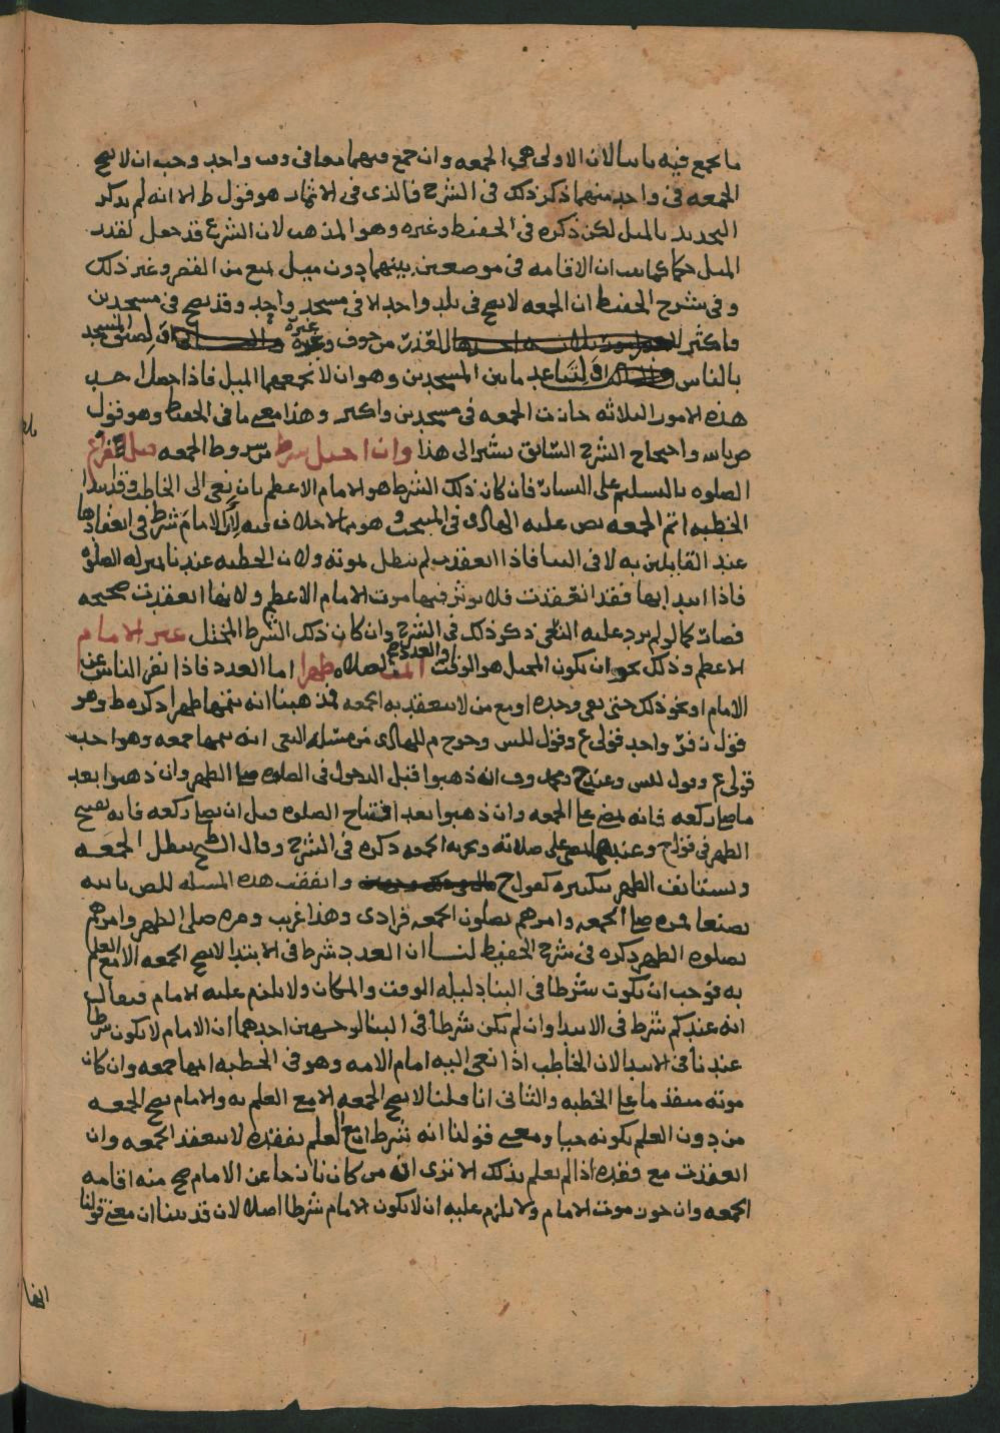 ما يجمع فيه ثانيا لان الاولى هي الجمعه وان جمع فيهما معا في وقت واحد وجب ان لا يصح
الجمعه في واحد منهما ذكر ذلك في الشرح فالذي في الاثمار هو قول ط الا انه لم يذكر
التحديد بالميل لكن ذكره في الحفيظ وغيره وهو المذهب لان الشرع قد جعل لقدر
الميل حكما كما ان الاقامه في موضعين بينهما دون ميل لا يمنع من القصر وغير ذلك
وفي شرح الحفيظ ان الجمعه لا يصح في بلد واحد الا في مسجد واحد وقد يصح في مسجدين
واكثر لعذر من خوف وغيره او لضيق المسجد
بالناس او لتباعد ما بين المسجدين وهو ان لا يجمعهما الميل فاذا حصل احد
هذه الامور الثلاثه جازت الجمعه في مسجدين واكثر وهذا معنى ما في الحفيظ وهو قول
ص بالله واحتجاج الشرح السابق يشير الى هذا وان اختل شرط من شروط الجمعه قبل فراغ
الصلوه بالتسليم على اليسار فان كان ذلك الشرط هو الامام الاعظم بان نعي الى الخاطب وقد ابتدا
الخطبه اتم الجمعه نص عليه الهادي في المنتخب وهو مما لا خلاف فيه لان الامام شرط في انعقادها
عند القايلين به لا في البنا فاذا انعقدت لم تبطل بموته ولان الخطبه عندنا بمنزله الصلوه
فاذا ابتداها فقد انعقدت فلا يوثر فيها موت الامام الاعظم ولانها انعقدت صحيحه
فصار كما لو لم يرد عليه النعي ذكر ذلك في الشرح وان كان ذلك الشرط المختل غير الامام
الاعظم وذلك نحو ان يكون المختل هو الوقت والعدد اتمت الصلاه ظهرا اما العدد فاذا نفر الناس عن
الامام او نحو ذلك حتى بقي وحده او مع من لا ينعقد به الجمعه فمذهبنا انه يتمها ظهرا ذكره ط وهو
قول زفر واحد قولي ع وقول للش وخرج م للهادي من مسئله النعي انه يتمها جمعه وهو احد
قولي ع وقول للش وعند ح ومحمد وف انه ذهبوا قبل الدخول في الصلوه صلى الظهر وان ذهبوا بعد
ما صلى ركعه فانه يمضي على الجمعه وان ذهبوا بعد افتتاح الصلوه قبل ان يصلي ركعه فانه يصح
الظهر في قول ح وعندهما يمضي على صلاته ويجزيه الجمعه ذكره في الشرح وقال الشيخ تبطل الجمعه
ويستانف الظهر بتكبيره كقول ح واتفقت هذه المسئله للناصر بالله
بصنعا فمره صلى الجمعه وامرهم يصلون الجمعه فرادى وهذا غريب ومره صلى الظهر وامرهم
بصلوه الظهر ذكره في شرح الحفيظ لنا ان العدد شرط في الابتدا لا يصح الجمعه الا مع العلم
به فوجب ان يكون شرطا في البنا دليله الوقت والمكان ولا يلزم عليه الامام فيقال
انه عندكم شرط في الابتدا وان لم يكن شرطا في البنا لوجهين احدهما ان الامام لا يكون شرطا
عندنا في الابتدا لان الخاطب اذا نعي اليه امام الامه وهو في الخطبه اتمها جمعه وان كان
موته متقدما على الخطبه والثاني انا قلنا لا يصح الجمعه الا مع العلم به والامام يصح الجمعه
من دون العلم بكونه حيا ومعنى قولنا انه شرط ان مع العلم بفقده لا ينعقد الجمعه وان
انعقدت مع فقده اذا لم يعلم بذلك الا ترى ان من كان نازحا عن الامام صح منه اقامه
الجمعه وان جوز موت الامام ولا يلزم عليه ان لا يكون الامام شرطا اصلا لان قد بينا ان معنى قولنا